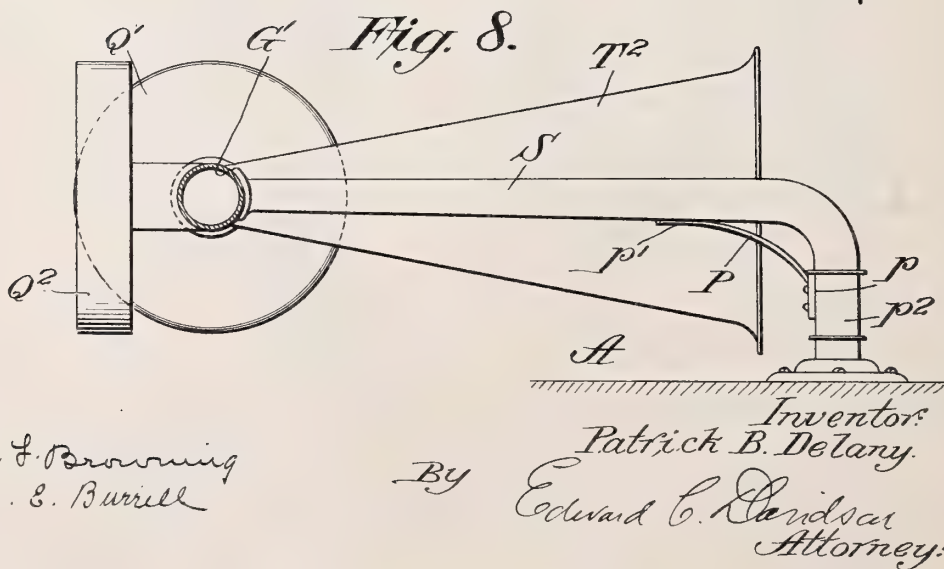 Fig. 8.
Q'
G'
T²
S
p'
P
p
p²
Q²
A
Inventor:
Patrick B. Delany.
F. Browning
. E. Burrell
By
Edward C. Davidson
Attorney: